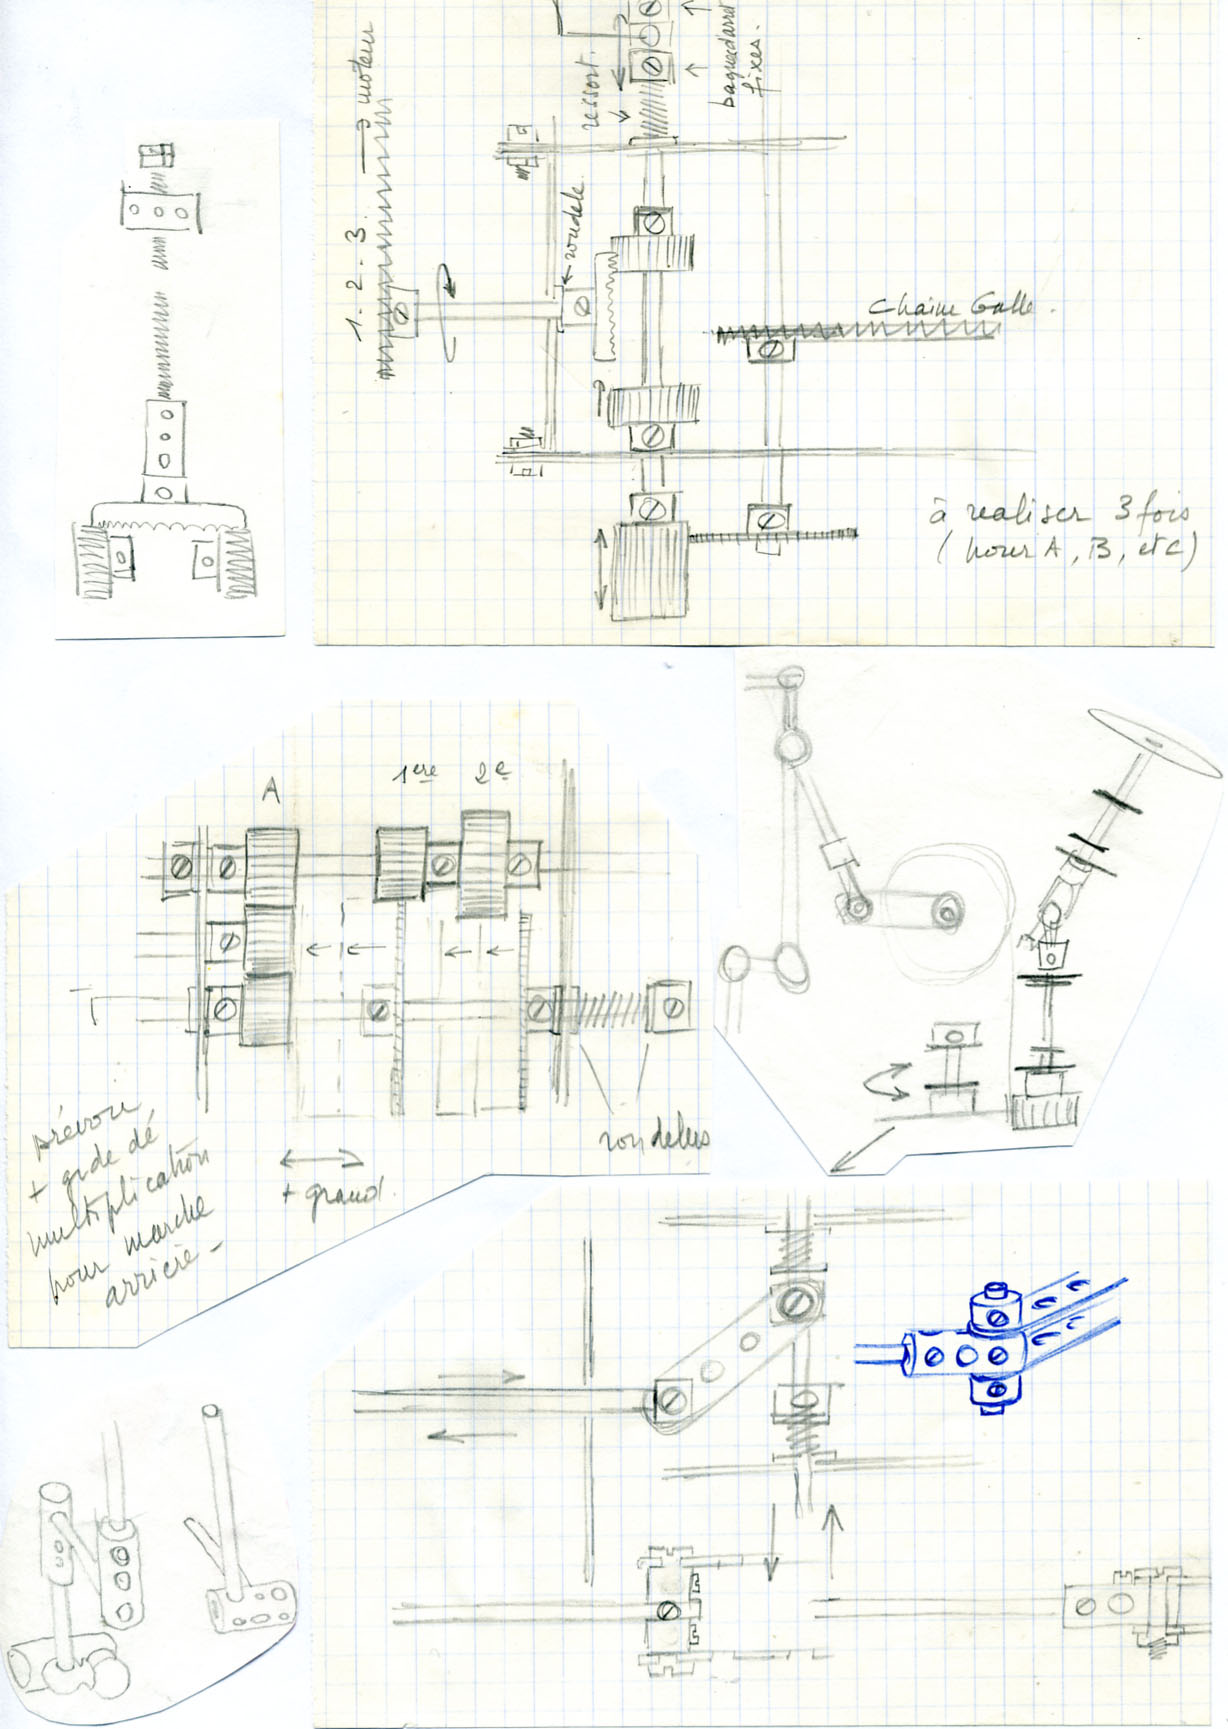 1 - 2 - 3. → moteur
ressort.
bagues d'arret
fixes.
rondele
Chaine Galle.
à realiser 3 fois
(pour A, B, et C)
A
1ere
2e
prévoir
+ gde dé
multiplication
pour marche
arriere -
+ grand.
rondelles